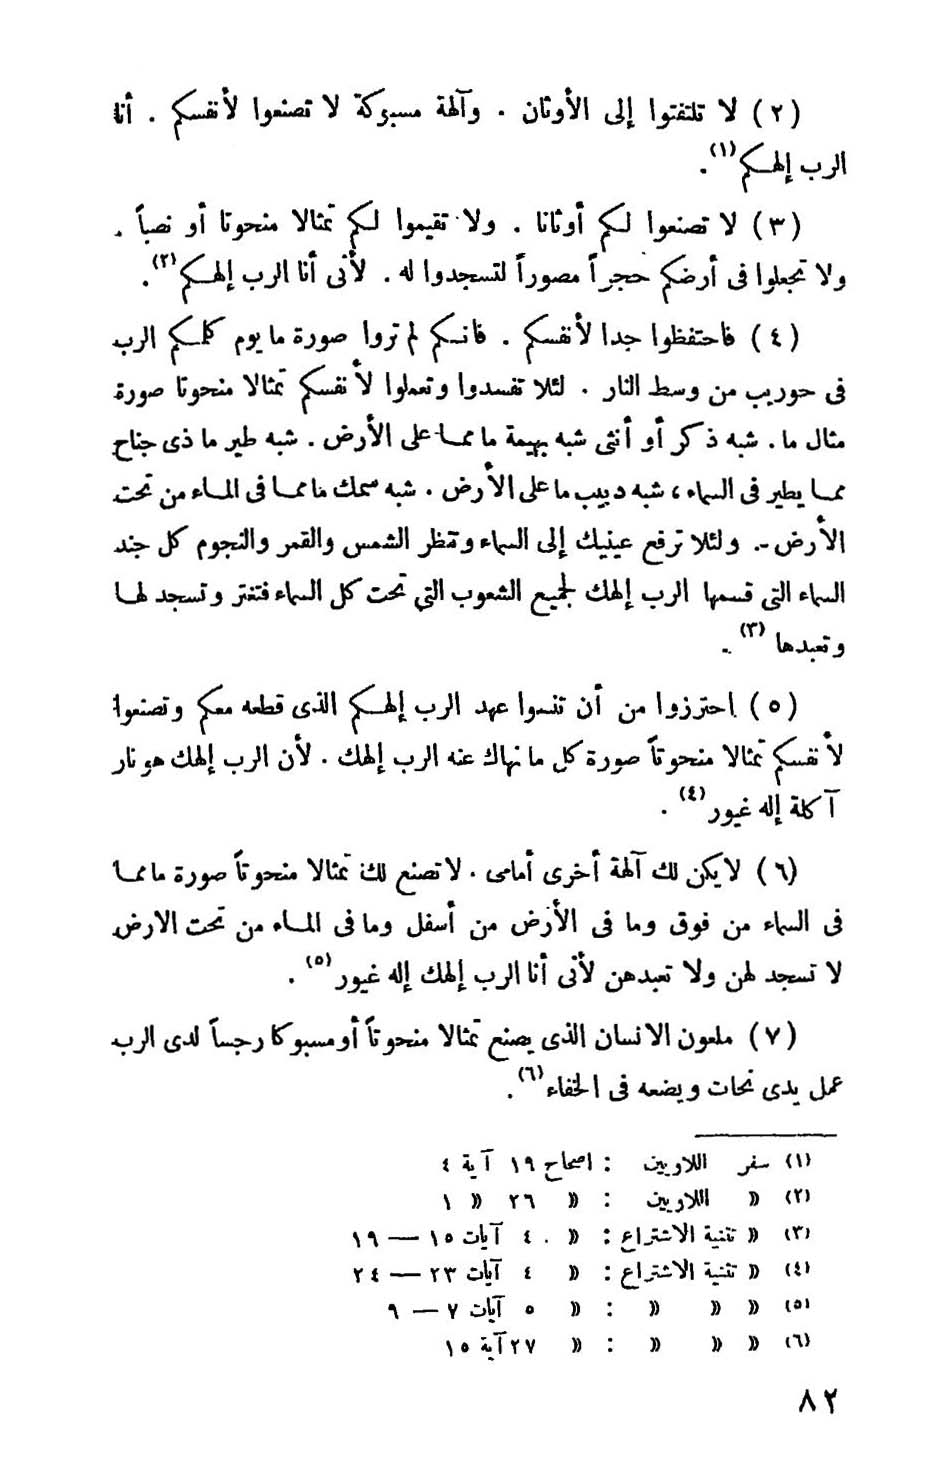 (٢) لا تلتفتوا إلى الأوثان . وآلهة مسبوكة لا تصنعوا لأنفسكم . أنا
الرب إلهـكم(١) .
(٣) لا تصنعوا لـكم أوثانا . ولا تقيموا لـكم تمثالا منحوتا أو نصباً .
ولا تجعلوا فى أرضكم حجراً مصوراً لتسجدوا له . لأنى أنا الرب إلهـكم(٢) .
(٤) فاحتفظوا جدا لأنفسكم . فانـكم لم تروا صورة ما يوم كلمـكم الرب
فى حوريب من وسط النار . لئلا تفسدوا وتعملوا لأنفسكم تمثالا منحوتا صورة
مثال ما . شبه ذكر أو أنثى شبه بهيمة ما ممـا على الأرض . شبه طير ما ذى جناح
ممـا يطير فى السماء ، شبه دبيب ما على الأرض . شبه سمك ما ممـا فى المـاء من تحت
الأرض . ولئلا ترفع عينيك إلى السماء وتنظر الشمس والقمر والنجوم كل جند
السماء التى قسمها الرب إلهك لجميع الشعوب التى تحت كل السماء فتغتر وتسجد لهـا
وتعبدها (٣) .
(٥) احترزوا من أن تنسوا عهد الرب إلهـكم الذى قطعه معكم وتصنعوا
لأنفسكم تمثالا منحوتاً صورة كل ما نهاك عنه الرب إلهك . لأن الرب إلهك هو نار
آكلة إله غيور(٤) .
(٦) لا يكن لك آلهة أخرى أمامى . لا تصنع لك تمثالا منحوتاً صورة ما ممـا
فى السماء من فوق وما فى الأرض من أسفل وما فى المـاء من تحت الارض
لا تسجد لهن ولا تعبدهن لأنى أنا الرب إلهك إله غيور(٥) .
(٧) ملعون الانسان الذى يصنع تمثالا منحوتاً أو مسبوكا رجساً لدى الرب
عمل يدى نحات ويضعه فى الخفاء(٦) .
(١) سفر اللاويين : اصحاح ١٩ آية ٤
(٢) » اللاويين : » ٢٦ » ١
(٣) » تثنية الاشتراع : » ٤ آيات ١٥ — ١٩
(٤) » تثنية الاشتراع : » ٤ آيات ٢٣ — ٢٤
(٥) » » » : » ٥ آيات ٧ — ٩
(٦) » » » : » ٢٧ آية ١٥
٨٢